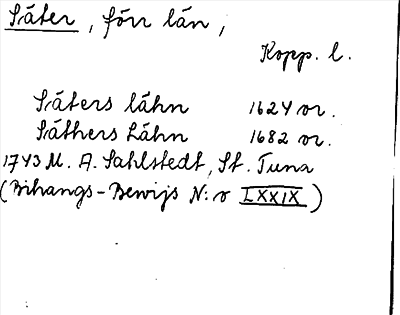 Säter, förr län,
Kopp. l.
Säters lähn 1624 or.
Säthers Lähn 1682 or.
1743 M. A. Sahlstedt, St. Tuna
(Bihangs-Bewijs N:o LXXIX)